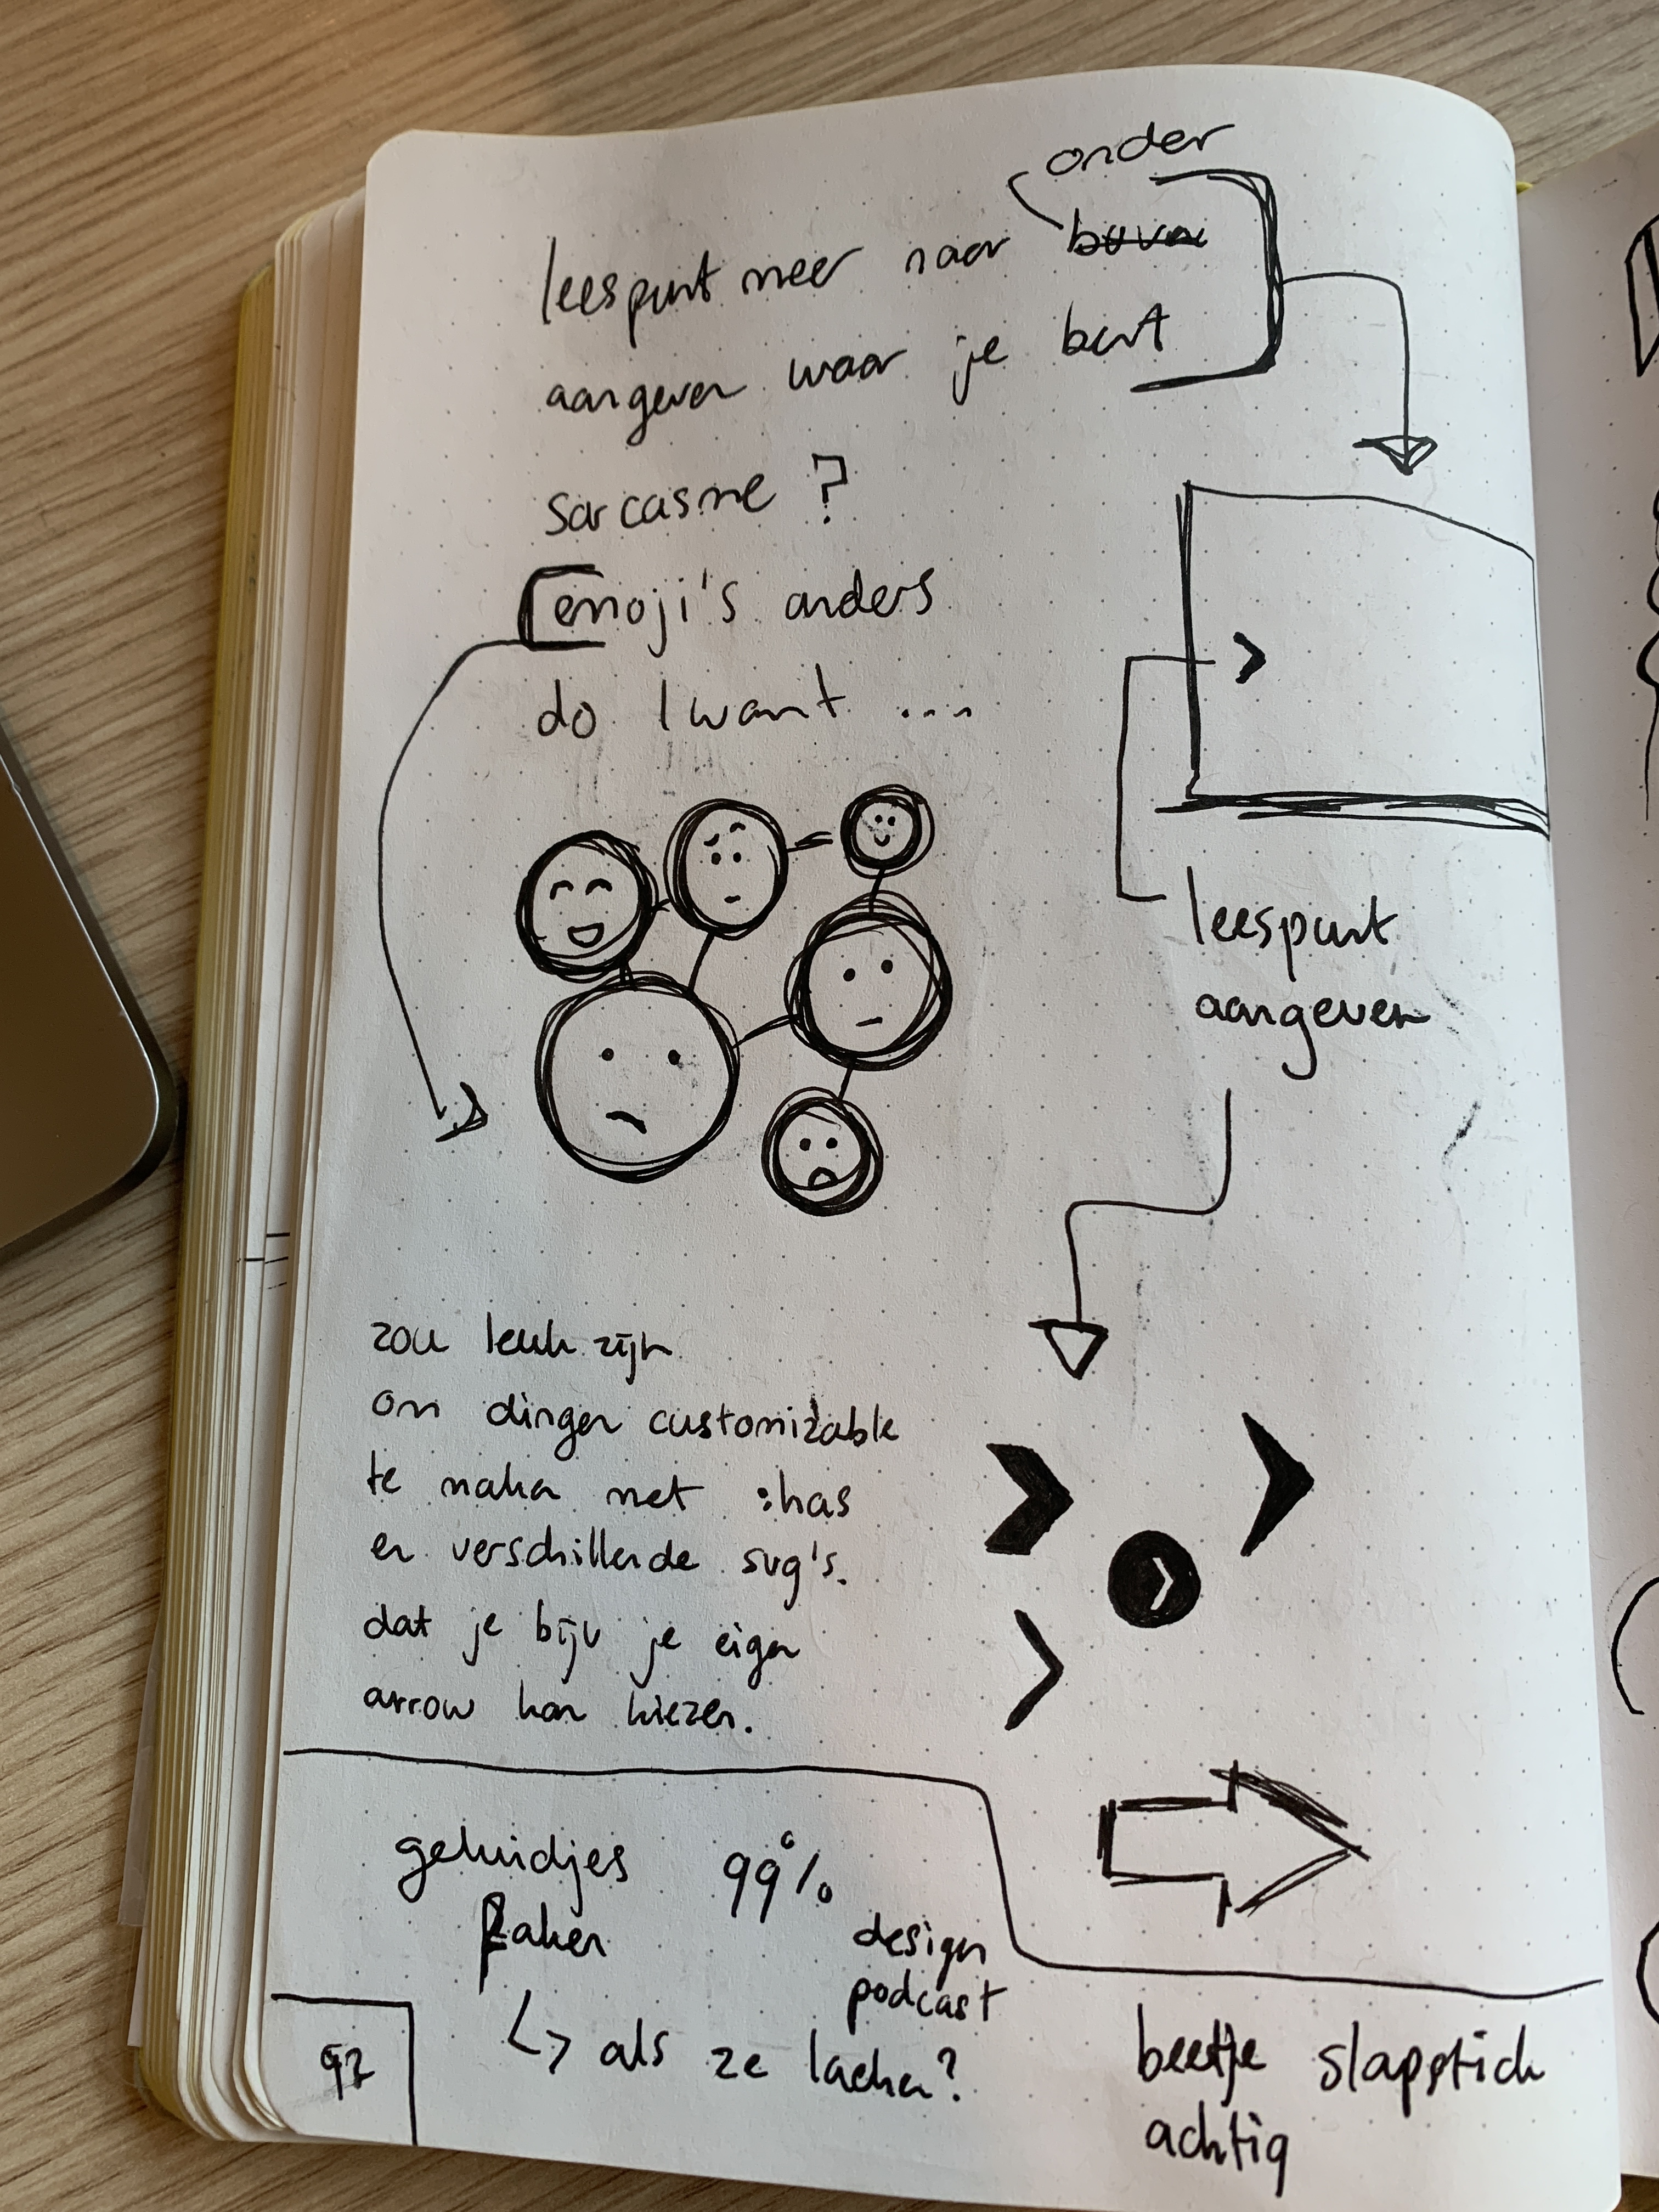 onder
leespunt meer naar boven
aangeven waar je bent
sarcasme ?
emoji's anders
do I want ...
leespunt
aangeven
zou leuk zijn
om dingen customizable
te maken met :has
en verschillende svg's.
dat je bijv je eigen
arrow kan kiezen.
geluidjes 99%
faken
design
podcast
↳ als ze lachen?
beetje slapstick
achtig